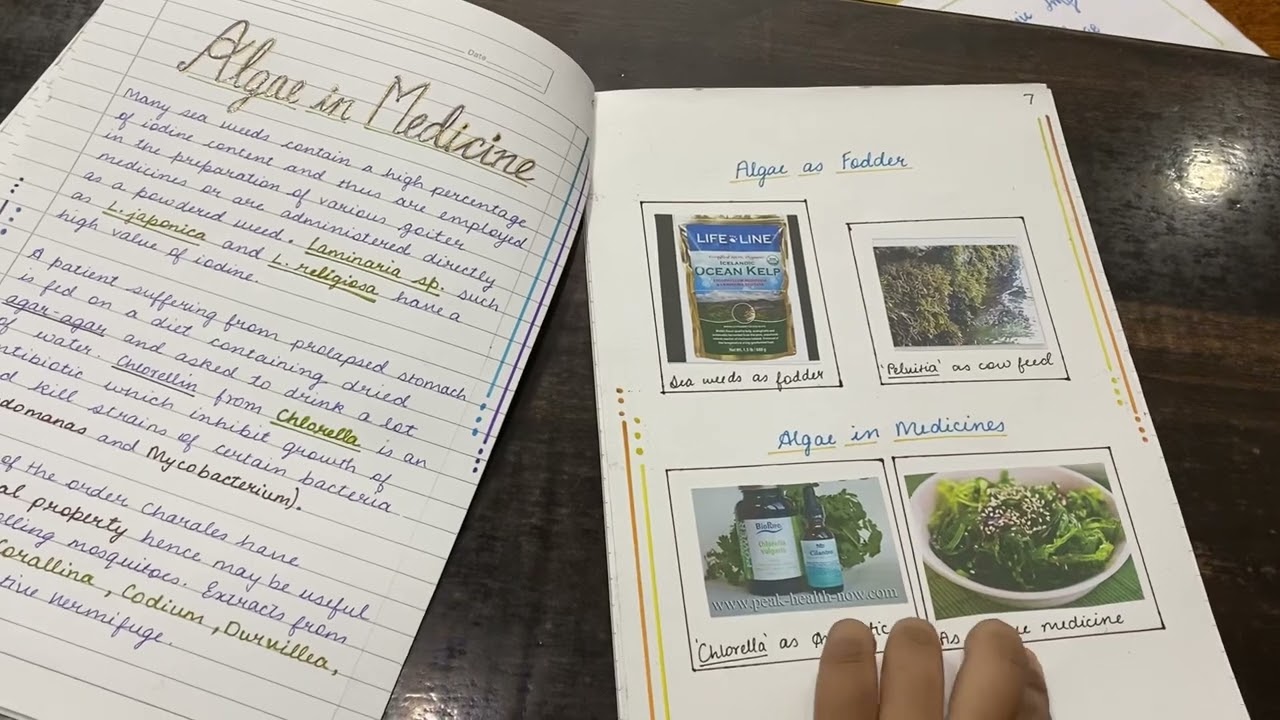 Date
Algae in Medicine
Many sea weeds contain a high percentage
of iodine content and thus are employed
in the preparation of various goiter
medicines or are administered directly
as a powdered weed. Laminaria sp. such
as L.japonica and L. religiosa have a
high value of iodine.
A patient suffering from prolapsed stomach
is fed on a diet containing dried
agar-agar and asked to drink a lot
of water. Chlorellin from Chlorella is an
antibiotic which inhibit growth of
kill strains of certain bacteria
and Mycobacterium).
of the order charales have
property hence may be useful
mosquitoes. Extracts from
Corallina, Codium, Durvillea,
vermifuge.
7
Algae as Fodder
LIFE LINE
ICELANDIC
OCEAN KELP
Sea weeds as fodder
'Peluitia' as cow feed
Algae in Medicines
BioPure
Chlorella
Vulgaris
Cilantro
www.peak-health-now.com
'Chlorella' as
As medicine